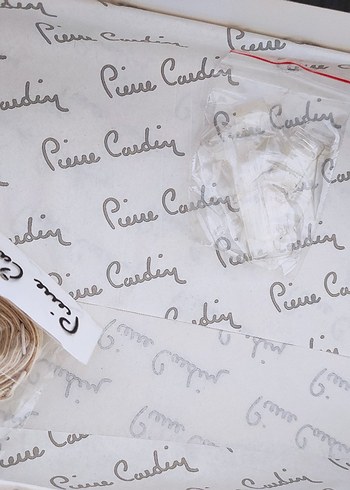 Pierre Cardin
Pierre
Pierre Cardin
Cardin
Pierre Cardin
Pierre Cardin
Pierre Cardin
Cardin
Pierre Cardin
Pierre Cardin
Pierre Cardin
Pierre Cardin
Cardin
Pierre
Pierre Cardin
Pierre Cardin
Pierre Cardin